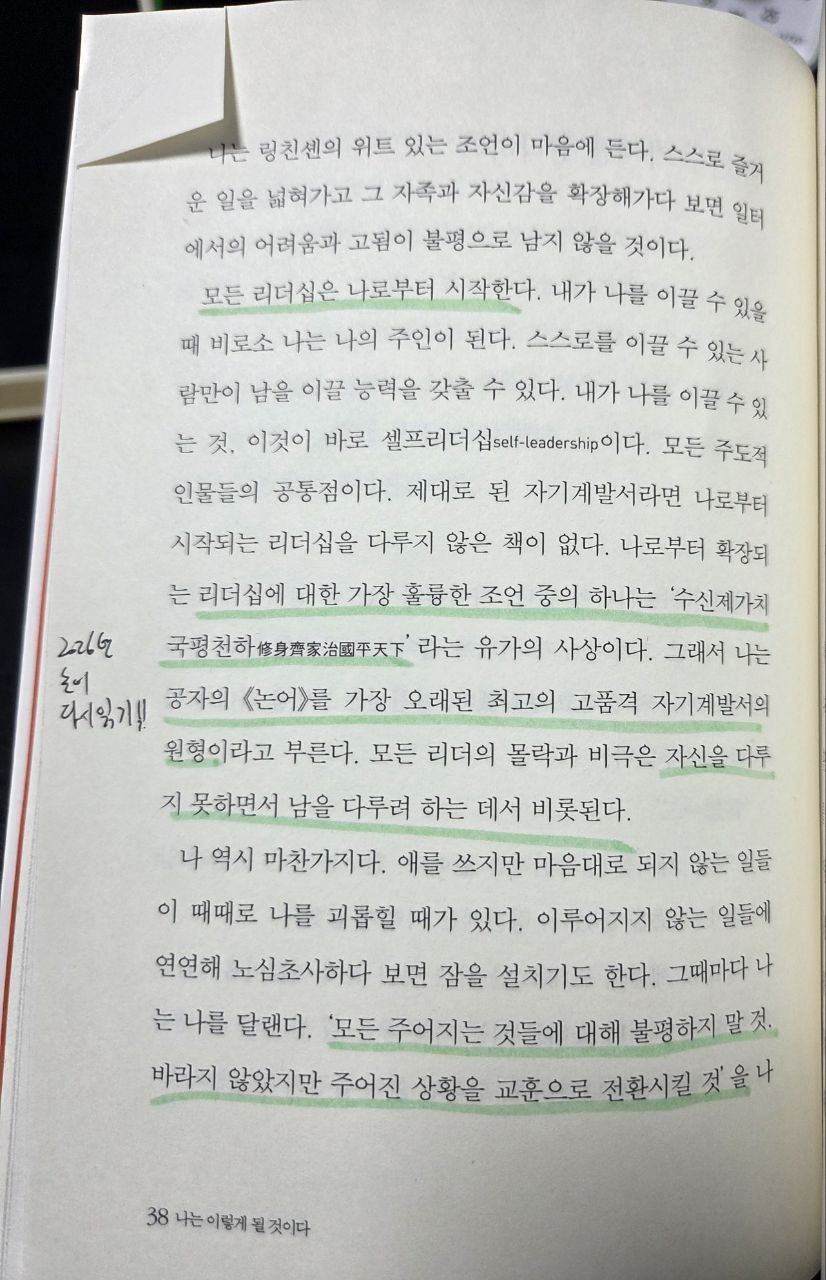 나는 링친셴의 위트 있는 조언이 마음에 든다. 스스로 즐거
운 일을 넓혀가고 그 자족과 자신감을 확장해가다 보면 일터
에서의 어려움과 고됨이 불평으로 남지 않을 것이다.
모든 리더십은 나로부터 시작한다. 내가 나를 이끌 수 있을
때 비로소 나는 나의 주인이 된다. 스스로를 이끌 수 있는 사
람만이 남을 이끌 능력을 갖출 수 있다. 내가 나를 이끌 수 있
는 것, 이것이 바로 셀프리더십self-leadership이다. 모든 주도적
인물들의 공통점이다. 제대로 된 자기계발서라면 나로부터
시작되는 리더십을 다루지 않은 책이 없다. 나로부터 확장되
는 리더십에 대한 가장 훌륭한 조언 중의 하나는 ‘수신제가치
국평천하修身齊家治國平天下’라는 유가의 사상이다. 그래서 나는
공자의 《논어》를 가장 오래된 최고의 고품격 자기계발서의
원형이라고 부른다. 모든 리더의 몰락과 비극은 자신을 다루
지 못하면서 남을 다루려 하는 데서 비롯된다.
나 역시 마찬가지다. 애를 쓰지만 마음대로 되지 않는 일들
이 때때로 나를 괴롭힐 때가 있다. 이루어지지 않는 일들에
연연해 노심초사하다 보면 잠을 설치기도 한다. 그때마다 나
는 나를 달랜다. ‘모든 주어지는 것들에 대해 불평하지 말 것.
바라지 않았지만 주어진 상황을 교훈으로 전환시킬 것’을 나
2026년
논어
다시 읽기!!
38 나는 이렇게 될 것이다